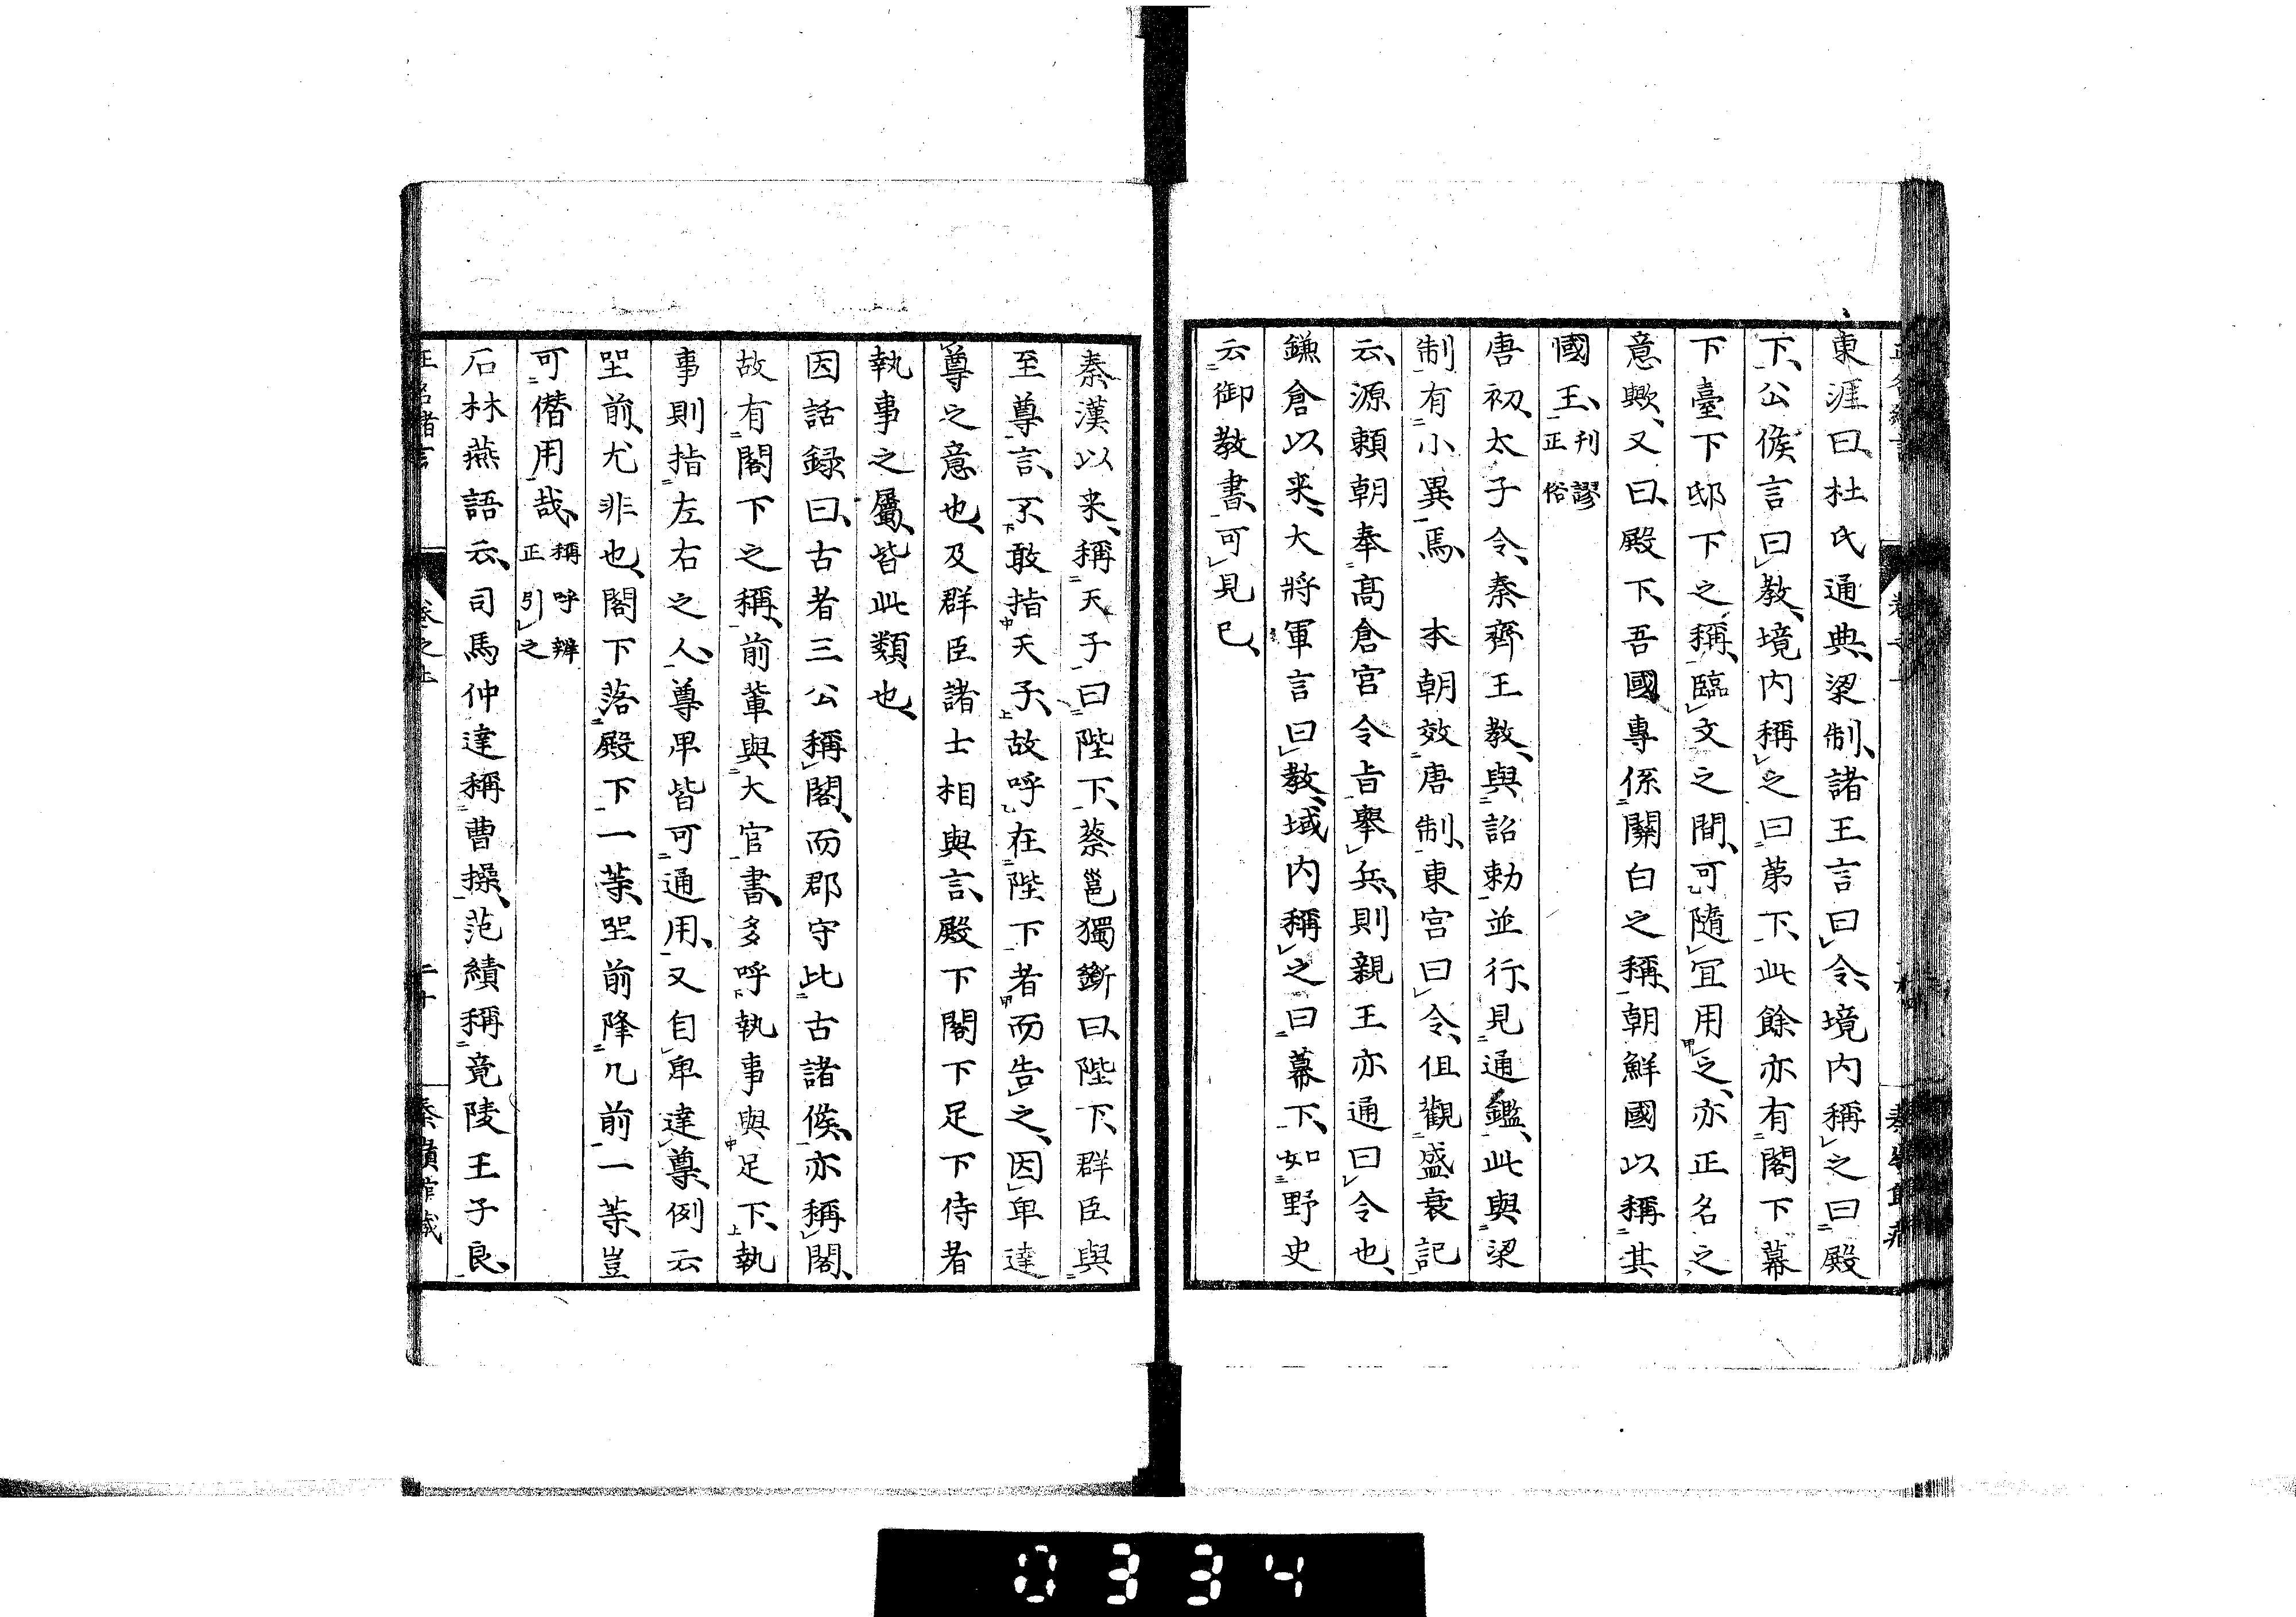 東涯曰、杜氏通典、梁制、諸王言曰令、境内稱之曰殿
下、公侯言曰教、境内稱之曰第下、此餘亦有閤下幕
下臺下邸下之稱、臨文之間、可隨冝用之、亦正名之
意歟、又曰、殿下、吾國專係關白之稱、朝鮮國以稱其
國王、刊謬正俗
唐初、太子令、秦齊王教、與詔勅並行、見通鑑、此與梁
制有小異焉、　本朝效唐制、東宮曰令、伹觀盛衰記
云、源頼朝奉髙倉宮令旨舉兵、則親王亦通曰令也、
鎌倉以来、大將軍言曰教、域内稱之曰幕下、如野史
云御教書、可見已、
秦漢以来、稱天子曰陛下、蔡邕獨斷曰、陛下、群臣與
至尊言、不敢指天子、故呼在陛下者而告之、因卑達
尊之意也、及群臣諸士相與言、殿下閤下足下侍者
執事之屬、皆此類也、
因話録曰、古者三公稱閤、而郡守比古諸侯、亦稱閤、
故有閤下之稱、前輩與大官書、多呼執事與足下、執
事則指左右之人、尊卑皆可通用、又自卑達尊、例云
坐前、尤非也、閤下落殿下一等、坐前降几前一等、豈
可僭用哉、稱呼辨正引之
石林燕語云、司馬仲達稱曹操、范縝稱竟陵王子良、
卷之上
0334